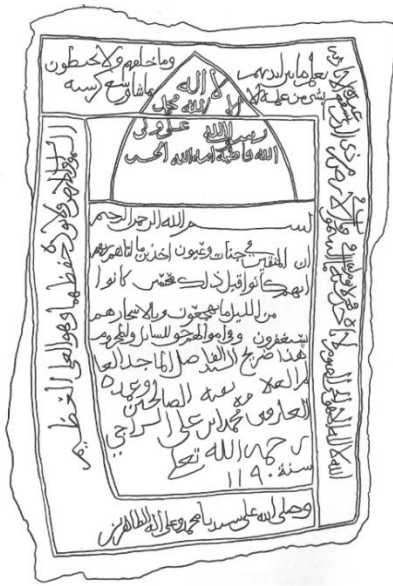 الله لا اله الا هو الحي القيوم لا تاخذه سنة ولا نوم له ما في السموات وما في الارض من ذا الذي يشفع عنده الا باذنه
يعلم ما بين ايديهم وما خلفهم ولا يحيطون
بشي من علمه الا بما شا وسع كرسيه
السموات والارض ولا يوده حفظهما وهو العلي العظيم
لا اله
الا الله محمد
رسول الله علي ولي
الله فاطمة امة الله
بسم الله الرحمن الرحيم
ان المتقين في جنات وعيون اخذين ما اتاهم ربهم
انهم كانوا قبل ذلك محسنين كانوا
من الليل ما يهجعون وبالاسحار هم
يستغفرون وفي اموالهم حق للسائل والمحروم
هذا ضريح السيد الفاضل الماجد العا
لم العلامة بقية الصالحين وعمدة
العارفين محمد ابن علي السراجي
رحمه الله تعا
سنة ١١٩٠
وصلى الله على سيدنا محمد وعلى اله الطاهرين